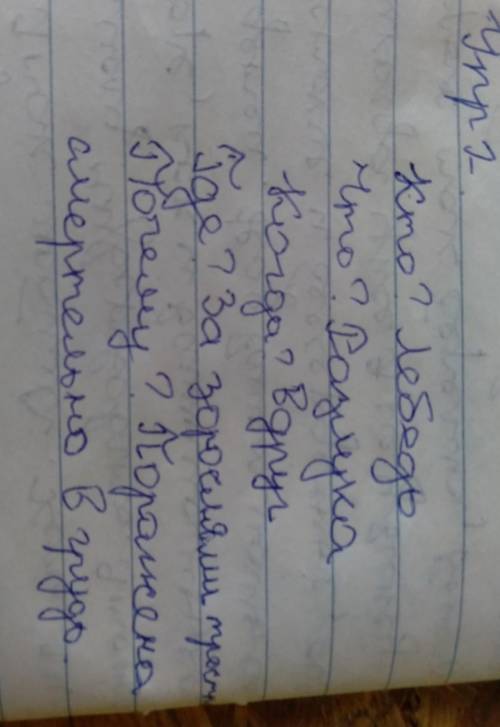 Упр 2
Кто? Лебедь
Что? Разлука
Когда? Вдруг
Где? За зарослями
Почему? Поражена
смертельно в грудь.